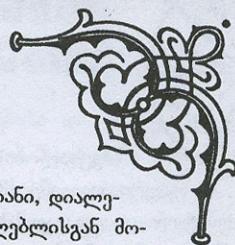 იანი, დიალე-
ლებლისგან მო-